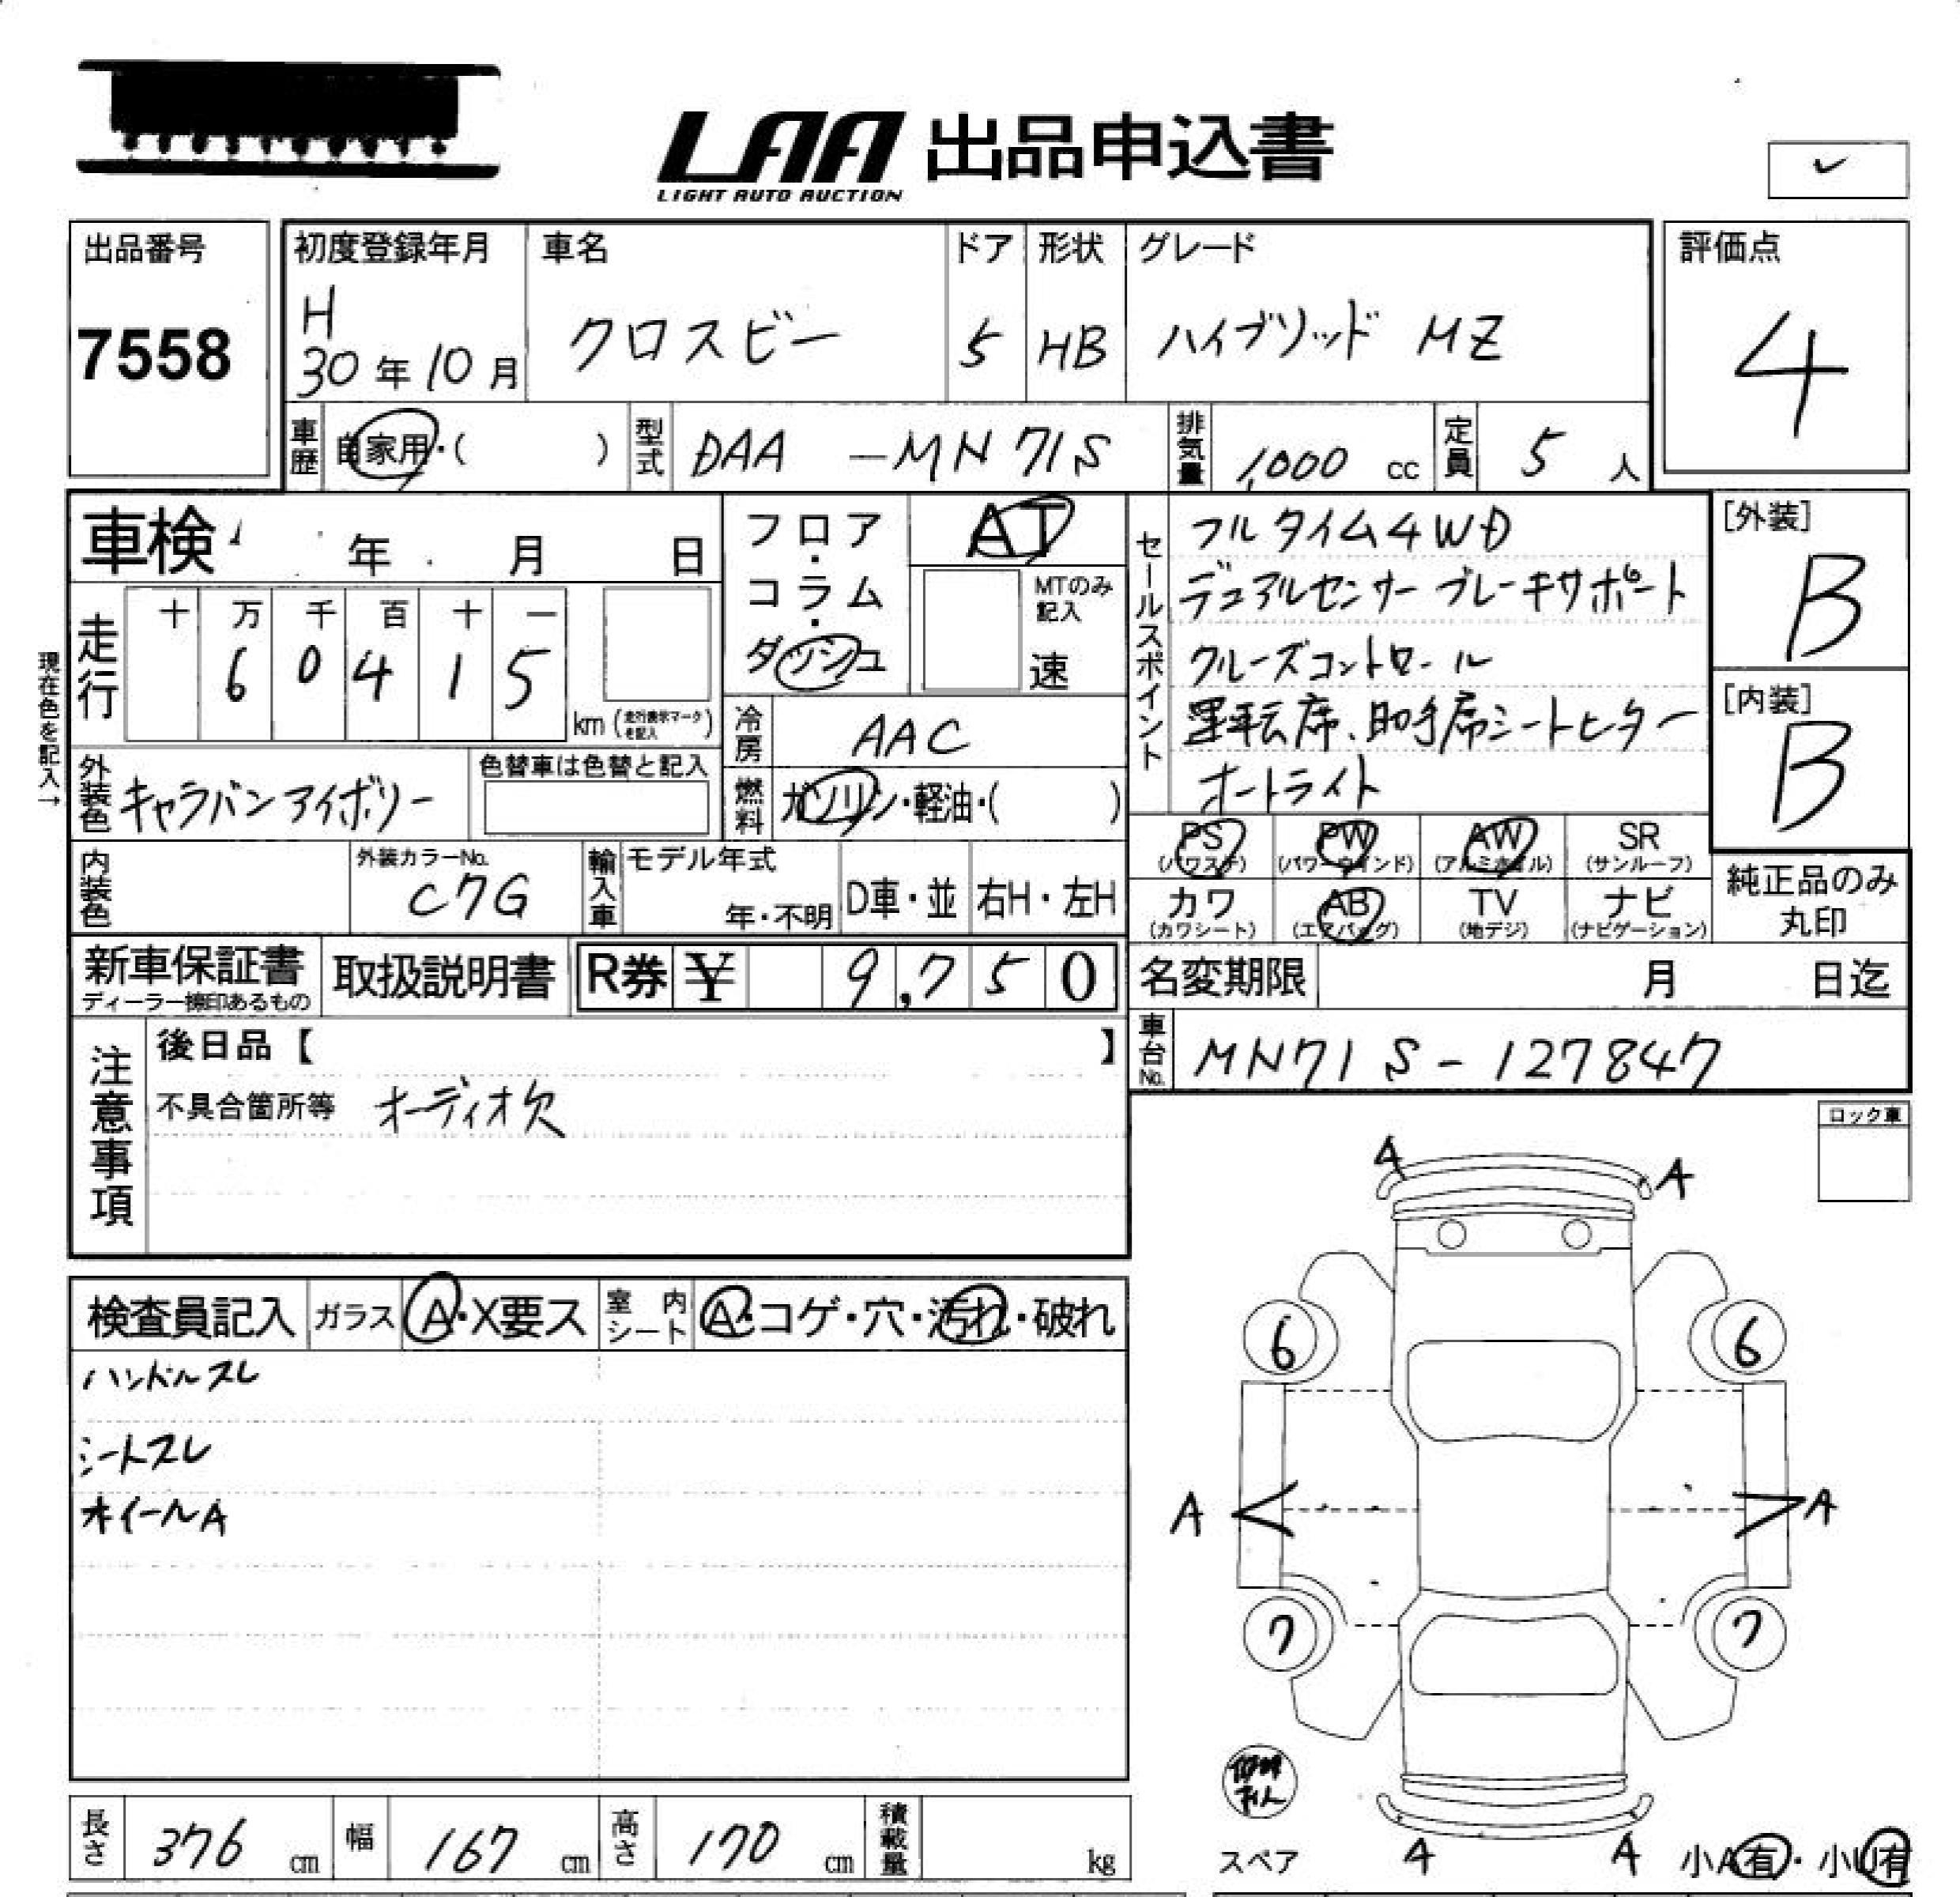 LAA 出品申込書
LIGHT AUTO AUCTION
出品番号
7558
初度登録年月
H
30年10月
車名
クロスビー
ドア
5
形状
HB
グレード
ハイブリッド MZ
評価点
4
車歴
自家用・( )
型式
DAA -MN71S
排気量
1,000 cc
定員
5 人
車検 年 月 日
現在色を記入→
走行
十 万 千 百 十 一
6 0 4 1 5
km (走行表示マークを記入)
フロア・コラム・ダッシュ
AT
MTのみ記入
速
冷房
AAC
燃料
ガソリン・軽油・( )
外装色
キャラバンアイボリー
色替車は色替と記入
内装色
外装カラーNo.
C7G
輸入車
モデル年式
年・不明
D車・並
右H・左H
セールスポイント
フルタイム4WD
デュアルセンサーブレーキサポート
クルーズコントロール
運転席、助手席シートヒーター
オートライト
[外装]
B
[内装]
B
PS (パワステ)
PW (パワーウインド)
AW (アルミホイル)
SR (サンルーフ)
カワ (カワシート)
AB (エアバッグ)
TV (地デジ)
ナビ (ナビゲーション)
純正品のみ
丸印
新車保証書
ディーラー捺印あるもの
取扱説明書
R券 ¥ 9,750
名変期限 月 日迄
車台No.
MN71S-127847
注意事項
後日品【 】
不具合箇所等 オーディオ欠
ロック車
検査員記入
ガラス A・X要ス
室内シート A・コゲ・穴・汚れ・破れ
ハンドルスレ
シートスレ
ホイールA
A A
6 6
A A
7 7
スペア
A A
小A有・小U有
長さ 376 cm
幅 167 cm
高さ 170 cm
積載量 kg